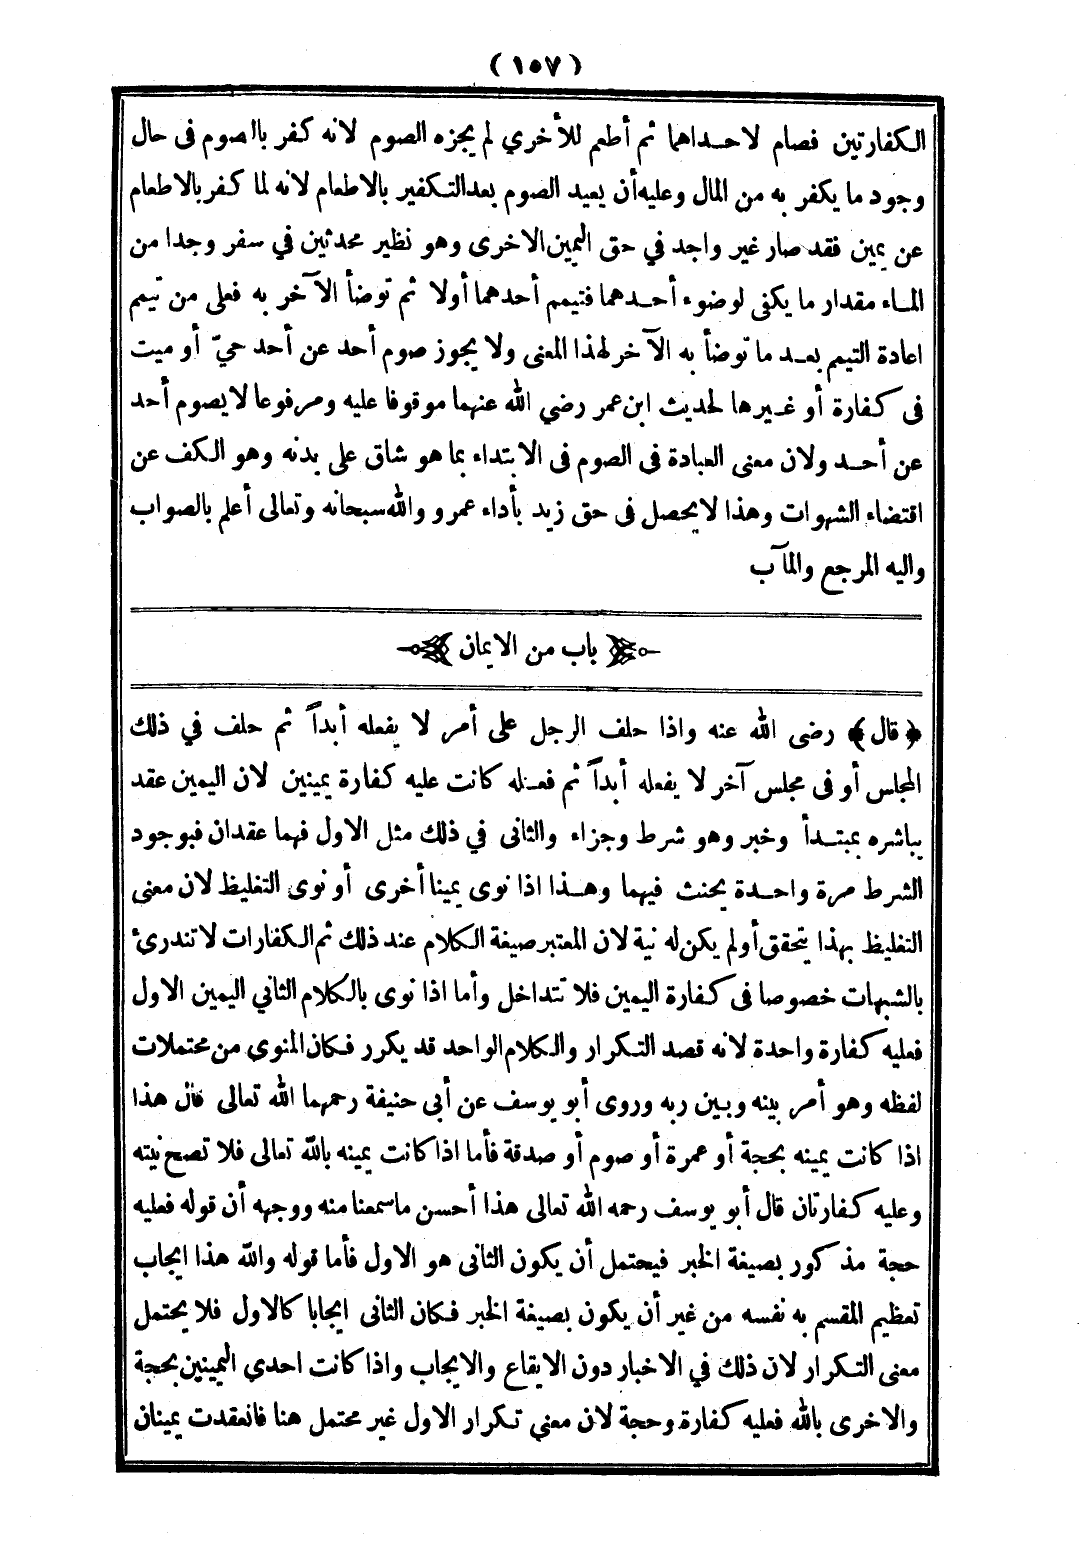 (١٥٧)
الكفارتين فصام لاحداهما ثم أطعم للأخري لم يجزه الصوم لانه كفر بالصوم فى حال
وجود ما يكفر به من المال وعليه أن يعيد الصوم بعد التكفير بالاطعام لانه لما كفر بالاطعام
عن يمين فقد صار غير واجد في حق اليمين الاخرى وهو نظير محدثين في سفر وجدا من
الماء مقدار ما يكفى لوضوء أحدهما فتيمم أحدهما أولا ثم توضأ الآخر به فعلى من تيمم
اعادة التيمم بعد ما توضأ به الآخر لهذا المعنى ولا يجوز صوم أحد عن أحد حيّ أو ميت
فى كفارة أو غيرها لحديث ابن عمر رضي الله عنهما موقوفا عليه ومرفوعا لا يصوم أحد
عن أحد ولان معنى العبادة فى الصوم فى الابتداء بما هو شاق على بدنه وهو الكف عن
اقتضاء الشهوات وهذا لا يحصل فى حق زيد بأداء عمرو والله سبحانه وتعالى أعلم بالصواب
واليه المرجع والمآب
باب من الايمان
﴿قال﴾ رضى الله عنه واذا حلف الرجل على أمر لا يفعله أبداً ثم حلف في ذلك
المجلس أو فى مجلس آخر لا يفعله أبداً ثم فعله كانت عليه كفارة يمينين لان اليمين عقد
يباشره بمبتدأ وخبر وهو شرط وجزاء والثانى في ذلك مثل الاول فهما عقدان فبوجود
الشرط مرة واحدة يحنث فيهما وهذا اذا نوى يمينا أخرى أو نوى التغليظ لان معنى
التغليظ بهذا يتحقق أو لم يكن له نية لان المعتبر صيغة الكلام عند ذلك ثم الكفارات لا تندرئ
بالشبهات خصوصا فى كفارة اليمين فلا تتداخل وأما اذا نوى بالكلام الثاني اليمين الاول
فعليه كفارة واحدة لانه قصد التكرار والكلام الواحد قد يكرر فكان المنوي من محتملات
لفظه وهو أمر بينه وبين ربه وروى أبو يوسف عن أبى حنيفة رحمهما الله تعالى قال هذا
اذا كانت يمينه بحجة أو عمرة أو صوم أو صدقة فأما اذا كانت يمينه بالله تعالى فلا تصح نيته
وعليه كفارتان قال أبو يوسف رحمه الله تعالى هذا أحسن ما سمعنا منه ووجهه أن قوله فعليه
حجة مذكور بصيغة الخبر فيحتمل أن يكون الثانى هو الاول فأما قوله والله هذا ايجاب
تعظيم المقسم به نفسه من غير أن يكون بصيغة الخبر فكان الثانى ايجابا كالاول فلا يحتمل
معنى التكرار لان ذلك في الاخبار دون الايقاع والايجاب واذا كانت احدي اليمينين بحجة
والاخرى بالله فعليه كفارة وحجة لان معني تكرار الاول غير محتمل هنا فانعقدت يمينان